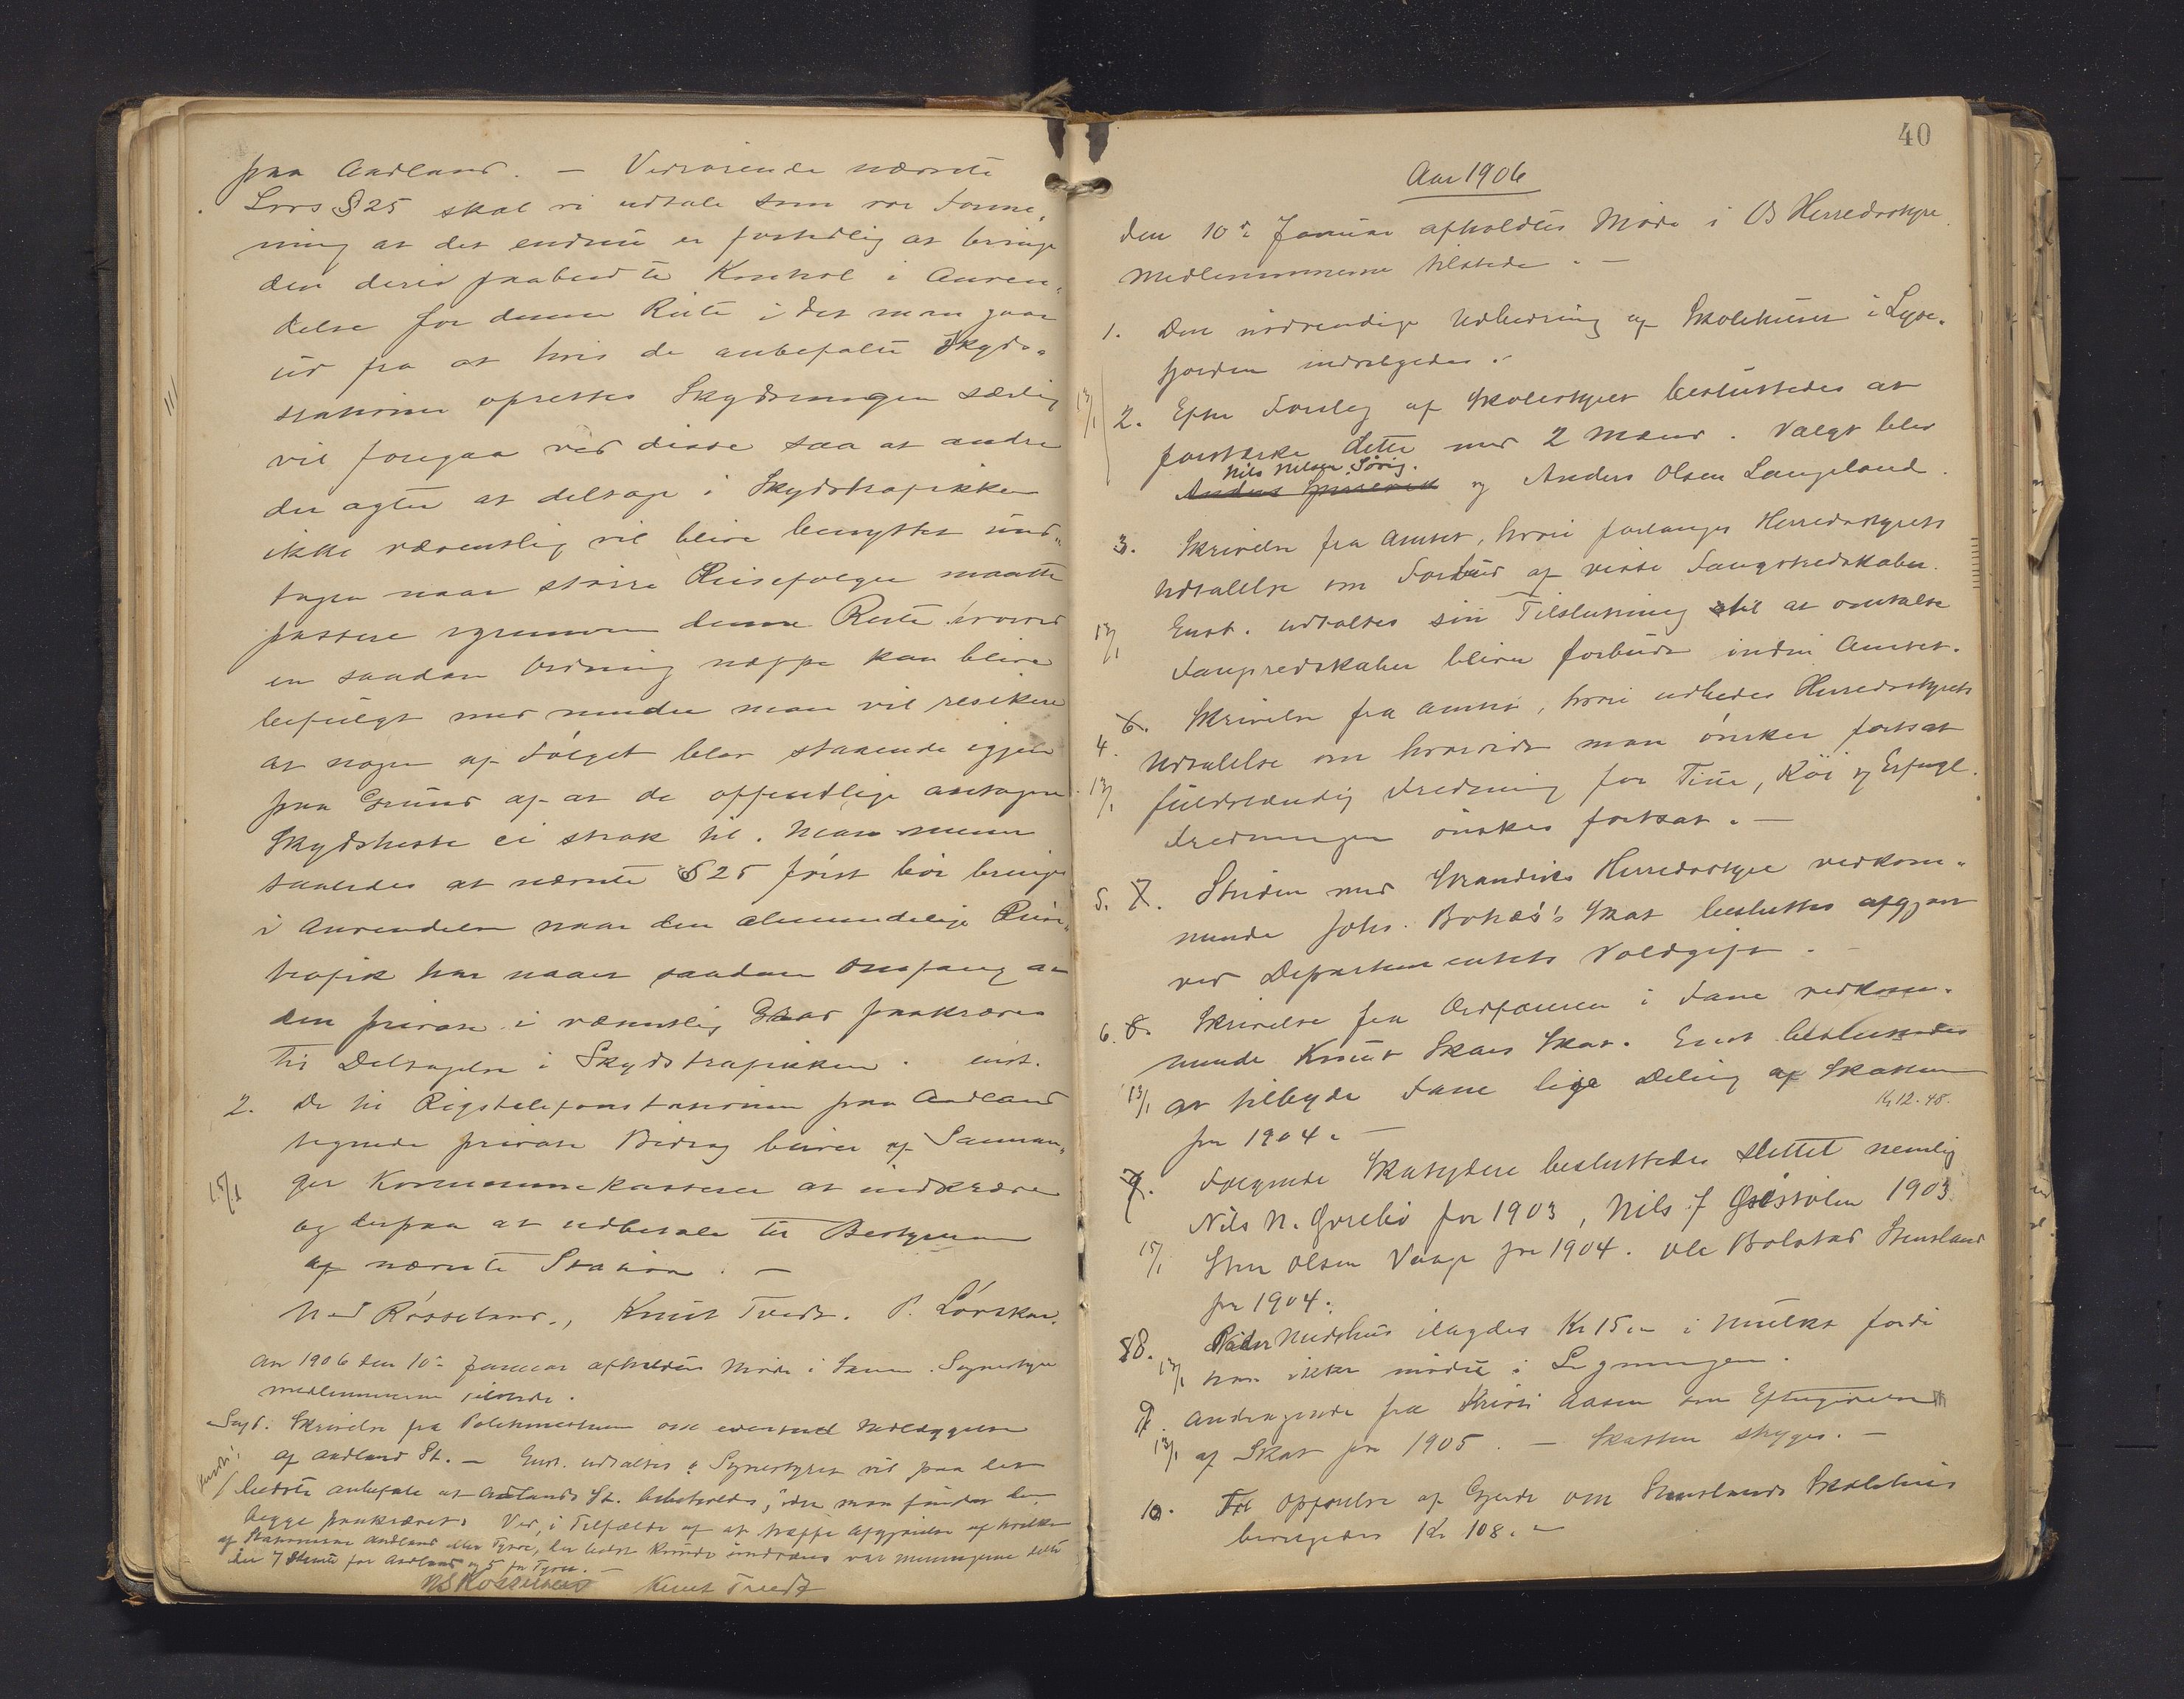 paa Aadland. — Vedrørende nævnte
Lovs § 25 skal vi udtale som vor Forme-
ning at det endnu er forhastelig at bringe
den deri paabudte Kontrol i Anven-
delse for denne Rute i det man gaar
ud fra at hvis de anbefalte Skyds-
stationer oprettes Skydsningen særlig
vil foregaa ved disse saa at andre
der agter at deltage i Skydstrafikken
ikke væsentlig vil blive benyttet und-
tagen naar større Reisefølger maatte
passere igjennem denne Rute hvorved
en saadan Ordning neppe kan blive
befulgt med mindre man vil resikere
at nogen af Følget blev staaende igjen
paa Grund af at de offentlige antagne
Skydsheste ei strak til. Man mener
saaledes at nævnte § 25 først bør bringes
i Anvendelse naar den almindelige Reise-
trafik har naaet saadan Omfang at
den private i væsentlig Grad paakræves
til Deltagelse i Skydstrafikken. enst.
2. De til Rigstelefonstationen paa Aadland
tegnede private Bidrag bliver af Samnan-
15/1
ger Kommunekasserer at indkræve
og derpaa at udbetale til Bestyreren
af nævnte Station. —
N S Røsseland., Knut Tveidt. P. Løvskar.
Aar 1906 den 10de Januar afholdtes Møde i Samn. Sognestyre
medlemmerne tilstede.
Sag 1. Skrivelse fra Politimesteren om eventuel Nedlæggelse
af Aadland St. — Enst. udtaltes: Sognestyret vil paa det
bedste anbefale at Aadlands St. bibeholdes, idet man finder den
begge paakrævet. Ved, i Tilfælde af at træffe Afgjørelse af hvilken
af Stationerne Aadland eller Tysse, der bedst kunde inddrages var meningerne delte
der 7 Stemte for Aadland og 5 for Tysse. —
NS Røsseland Knut Tveidt
40
Aar 1906
Den 10de Januar afholdtes Møde i Os Herredsstyre
Medlemmerne tilstede. —
1. Den nødvendige Udbedring af Skolehuset i Lyse-
fjorden indvilgedes.
13/1
2. Efter Forslag af Skolestyret besluttedes at
forstærke dette med 2 Mænd. Valgt blev
Nils Nilsen Søvig.
og Anders Olsen Langeland
3. Skrivelse fra Amtet, hvori forlanges Herredsstyrets
Udtalelse om Forbud af visse Fangstredskaber.
13/1
Enst. udtaltes sin Tilslutning til at omtalte
Fangredskaber bliver forbudt inden Amtet.
6. Skrivelse fra Amtet, hvori udbedes Herredsstyrets
4.
Udtalelse om hvorvidt man ønsker fortsat
13/1
fuldstændig Fredning for Tiur, Røi og Erfugl.
Fredningen ønskes fortsat. —
5. 7. Striden med Strandviks Herredsstyre vedkom-
mende Johs. Boknæs's Skat besluttes afgjort
ved Departementets Voldgift. —
6. 8. Skrivelse fra Ordføreren i Fane vedkom-
mende Knut Skaes Skat. Enst besluttedes
13/1
at tilbyde Fane lige Deling af Skatten
Kr 12.48.
for 1904. —
9. Følgende Skatydere besluttedes slettet nemlig
Nils N. Gorebø for 1903, Nils J Gåsstølen 1903
15/1
Sten Olsen Vaage for 1904. Ole Bolstad Stensland
for 1904.
8. Peder Midthus ilagdes Kr 15 — i Mulkt fordi
13/1
han ikke mødte i Ligningen.
9. Andragende fra Kristi Aasen om Eftergivelse
13/1
af Skat for 1905. — Skatten stryges. —
10. Til Opførelse af Gjerde om Stenslands Skolehus
bevilgedes Kr 108. —